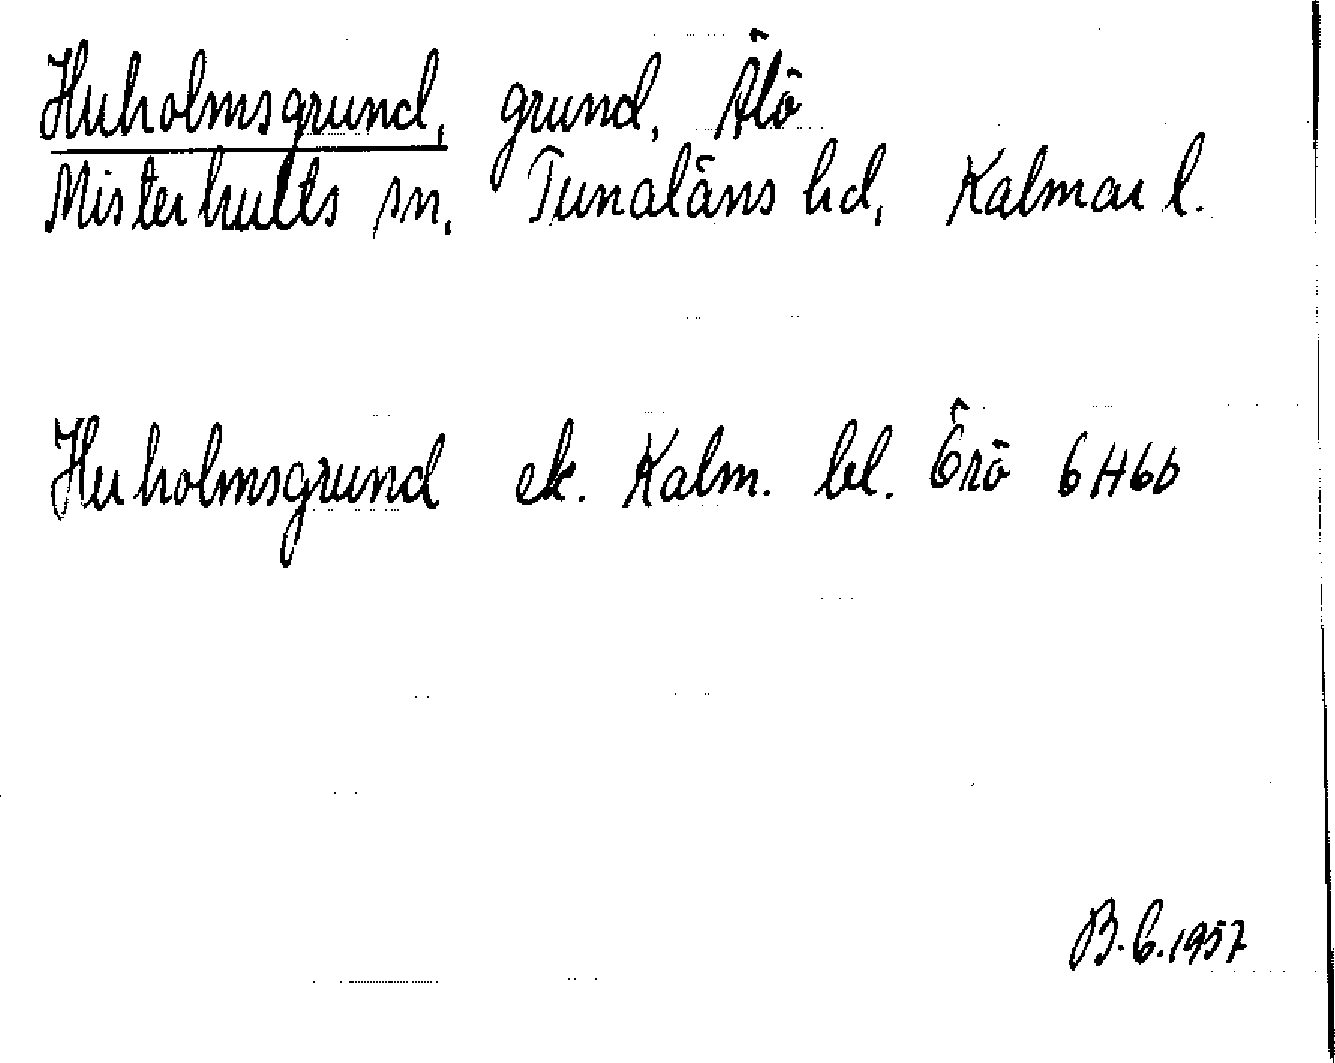 Huholmsgrund, grund, Älö
Misterhults sn, Tunaläns hd, Kalmar l.
Huholmsgrund ek. Kalm. bl. Örö 6H6b
B.C. 1957